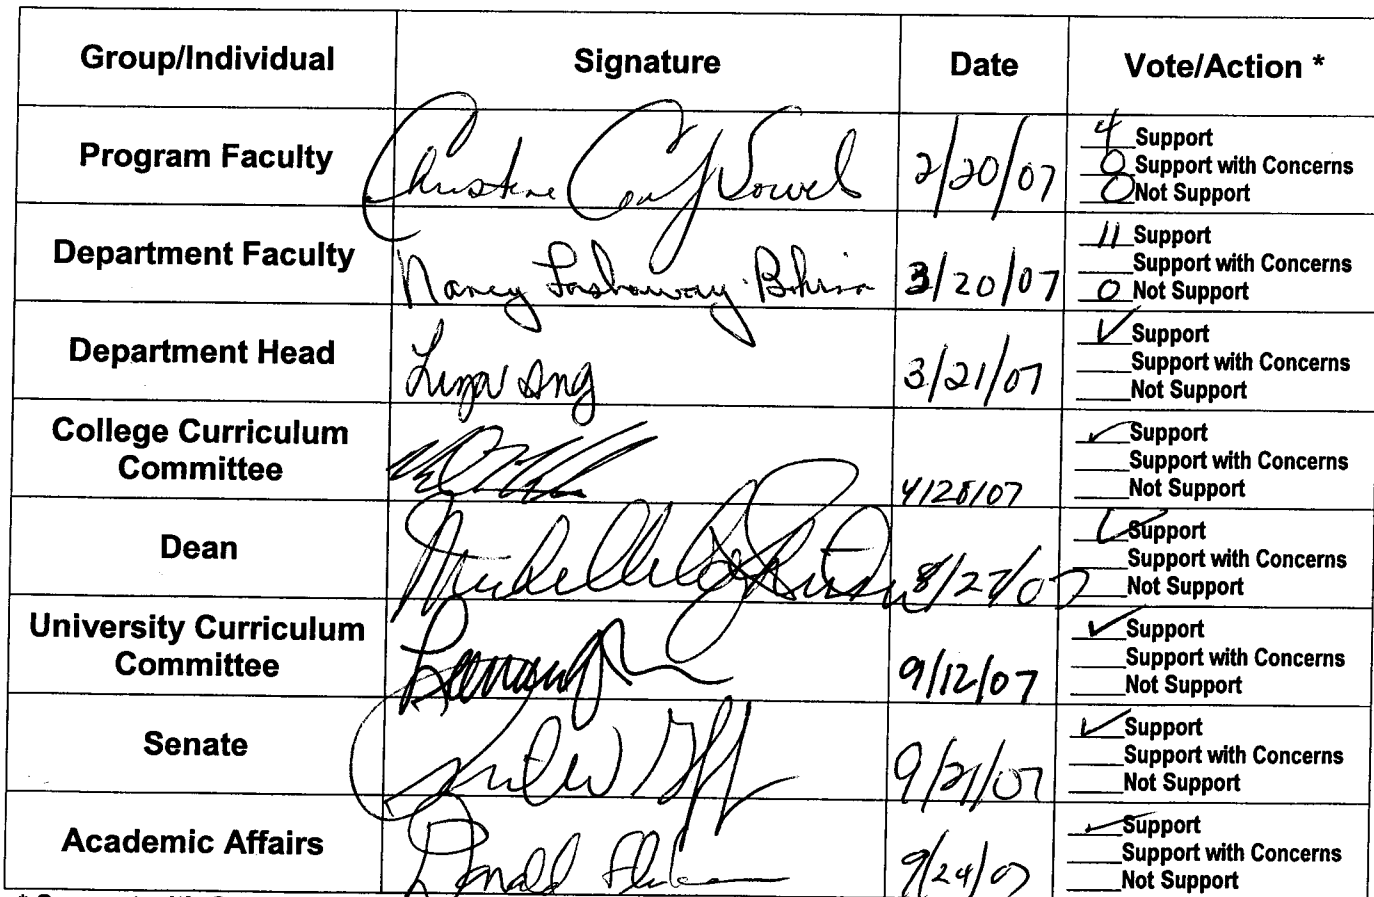 Group/Individual Signature Date Vote/Action *
Program Faculty Christine 2/20/07
4 Support
0 Support with Concerns
0 Not Support
Department Faculty Nancy 3/20/07
11 Support
Support with Concerns
0 Not Support
Department Head 3/21/07
✓ Support
Support with Concerns
Not Support
College Curriculum
Committee
✓ Support
Support with Concerns
Not Support
Dean 8/27/07
✓ Support
Support with Concerns
Not Support
University Curriculum
Committee 9/12/07
✓ Support
Support with Concerns
Not Support
Senate 9/21/07
✓ Support
Support with Concerns
Not Support
Academic Affairs Donald 9/24/07
✓ Support
Support with Concerns
Not Support